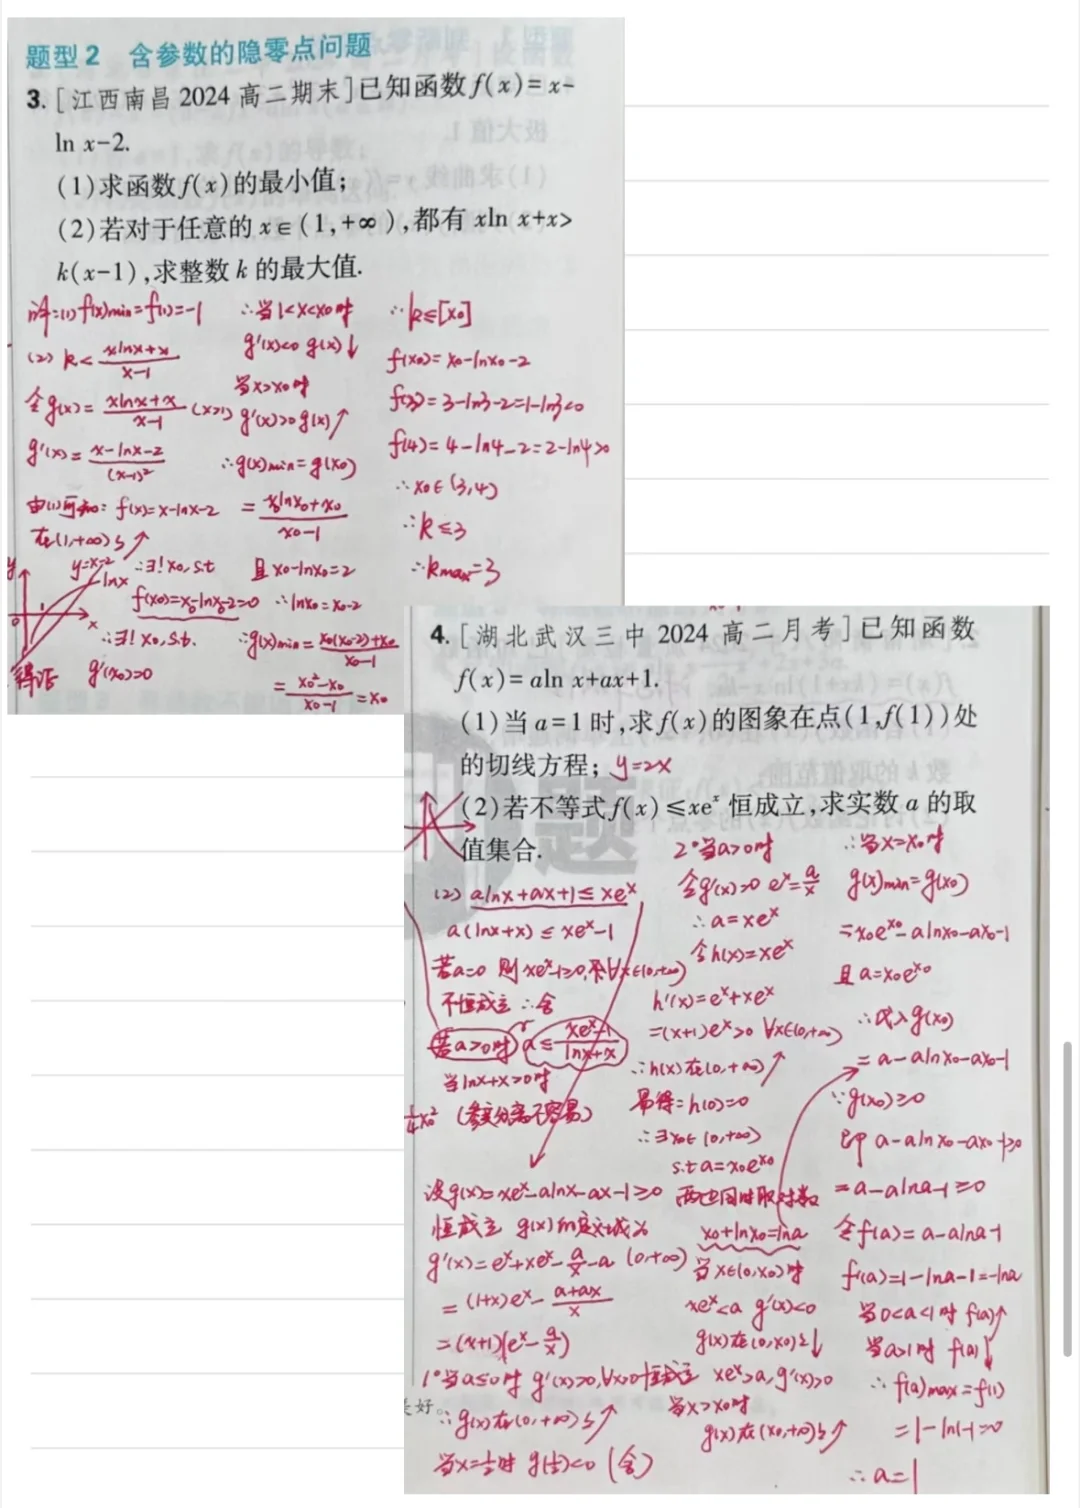 题型2 含参数的隐零点问题
3.[江西南昌2024高二期末]已知函数f(x)=x-
ln x-2.
(1)求函数f(x)的最小值;
(2)若对于任意的x∈(1,+∞),都有xln x+x>
k(x-1),求整数k的最大值.
解:(1) f(x)min=f(1)=-1
(2) k< (xlnx+x)/(x-1)
令g(x)= (xlnx+x)/(x-1) (x>1)
g'(x)= (x-lnx-2)/(x-1)²
由(1)可知: f(x)=x-lnx-2
在(1,+∞)↗
y=x-2
lnx
y
x
0
1
得证
∴∃!x₀,s.t
f(x₀)=x₀-lnx₀-2=0
∴∃! x₀,s.t.
g'(x₀)=0
∴当1<x<x₀时
g'(x)<0 g(x)↓
当x>x₀时
g'(x)>0 g(x)↗
∴g(x)min=g(x₀)
= (x₀lnx₀+x₀)/(x₀-1)
且x₀-lnx₀=2
∴lnx₀=x₀-2
∴g(x)min= (x₀(x₀-2)+x₀)/(x₀-1)
= (x₀²-x₀)/(x₀-1) =x₀
∴k≤[x₀]
f(x₀)=x₀-lnx₀-2
f(3)=3-ln3-2=1-ln3<0
f(4)=4-ln4-2=2-ln4>0
∴x₀∈(3,4)
∴k≤3
∴kmax=3
4.[湖北武汉三中2024高二月考]已知函数
f(x)=aln x+ax+1.
(1)当a=1时,求f(x)的图象在点(1,f(1))处
的切线方程; y=2x
(2)若不等式f(x)≤xeˣ恒成立,求实数a的取
值集合.
(2) alnx+ax+1≤xeˣ
a(lnx+x)≤xeˣ-1
若a=0 则xeˣ-1≥0,不∀x∈(0,+∞)
不恒成立 ∴舍
若a>0时 a≤ (xeˣ-1)/(lnx+x)
当lnx+x>0时
(参变分离不容易)
¼x₀²
设g(x)=xeˣ-alnx-ax-1≥0
恒成立 g(x)的定义域为
(0,+∞)
g'(x)=eˣ+xeˣ-a/x-a
=(1+x)eˣ- (a+ax)/x
=(x+1)(eˣ-a/x)
1°当a≤0时 g'(x)>0,∀x>0恒成立
∴g(x)在(0,+∞)↗
当x=½时 g(½)<0 (舍)
2°当a>0时
令g'(x)=0 eˣ=a/x
∴a=xeˣ
令h(x)=xeˣ
h'(x)=eˣ+xeˣ
=(x+1)eˣ>0 ∀x∈(0,+∞)
∴h(x)在(0,+∞)↗
易得:h(0)=0
∴∃x₀∈(0,+∞)
s.t a=x₀eˣ⁰
两边同时取对数
x₀+lnx₀=lna
当x∈(0,x₀)时
xeˣ<a g'(x)<0
g(x)在(0,x₀)↓
xeˣ>a,g'(x)>0
当x>x₀时
g(x)在(x₀,+∞)↗
∴当x=x₀时
g(x)min=g(x₀)
=x₀eˣ⁰-alnx₀-ax₀-1
且a=x₀eˣ⁰
∴代入g(x₀)
=a-alnx₀-ax₀-1
∵g(x₀)≥0
即a-alnx₀-ax₀-1≥0
=a-alna-1≥0
令f(a)=a-alna-1
f'(a)=1-lna-1=-lna
当0<a<1时 f(a)↗
当a>1时 f(a)↓
∴f(a)max=f(1)
=1-ln1-1=0
∴a=1
好。